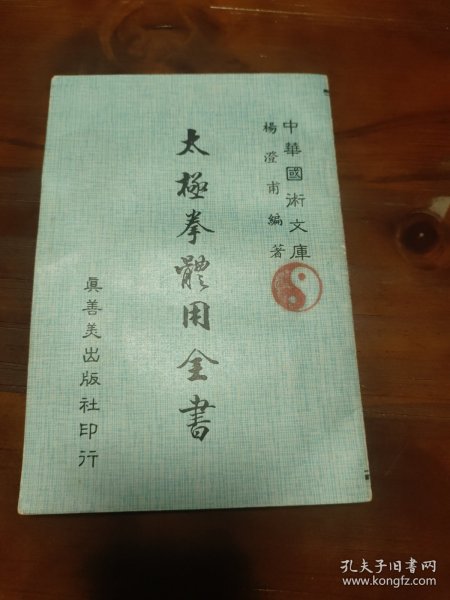 中華國術文庫
楊澄甫編著
太極拳體用全書
眞善美出版社印行
孔夫子旧书网
www.kongfz.com